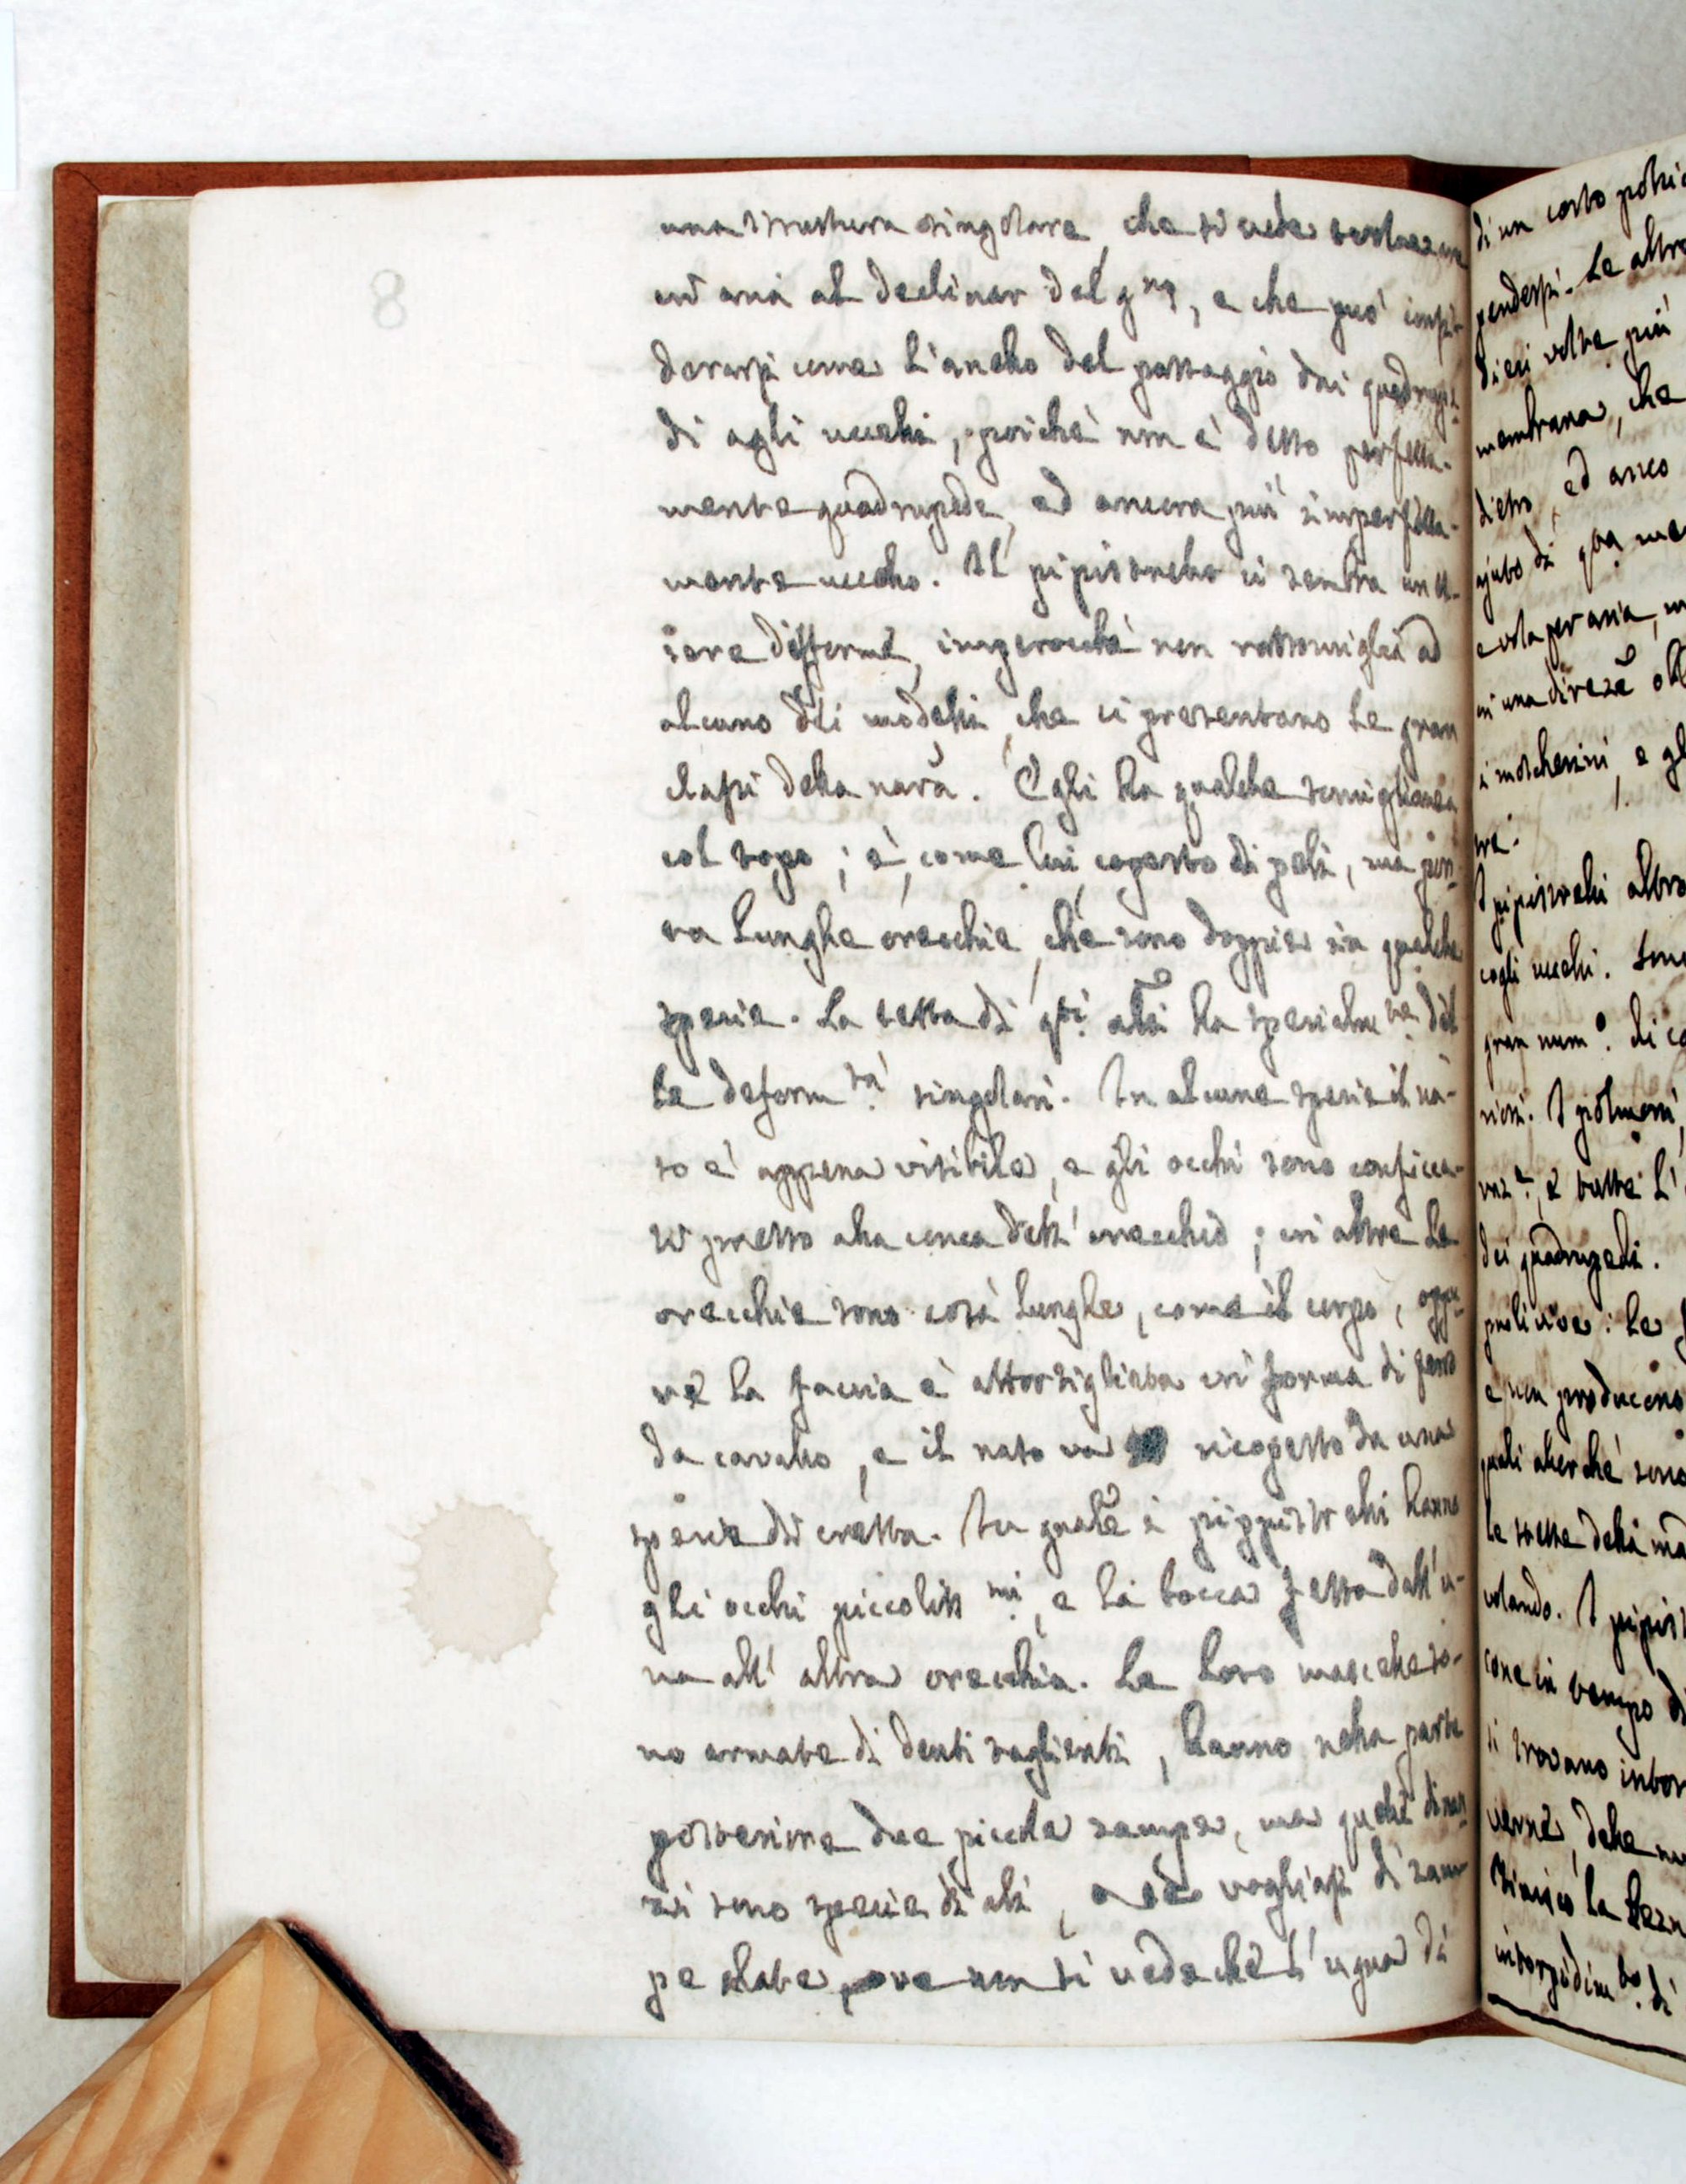 8
una struttura singolare, che si vede svolazzare
in aria al declinar del g.no, e che può consi-
derarsi come l'anello del passaggio dai quadrupe-
di agli uccelli, poichè non è desso perfetta-
mente quadrupede, ed ancora più imperfetta-
mente uccello. Il pipistrello ci sembra un es-
sere difforme, imperocchè non rassomiglia ad
alcuno dei modelli, che ci presentano le gran
classi della nat.a. Egli ha qualche somiglianza
col topo; è, come lui, coperto di peli, ma por-
ta lunghe orecchie, che sono doppie in qualche
specie. La testa di q.sti ali ha specialm.te del
le deform.tà singolari. In alcune specie il na-
so è appena visibile, e gli occhi sono conficca-
ti presso alla conca dell'orecchio; in altre le
orecchie sono così lunghe, come il corpo, oppu-
re la faccia è attortigliata in forma di ferro
da cavallo, e il naso va ricoperto da una
specie di cresta. In gnāle i pippistrelli hanno
gli occhi piccoliss.mi, e la bocca fessa dall'u-
na all'altra orecchia. Le loro mascelle so-
no armate di denti taglienti, hanno nella parte
posteriore due piccole zampe, ma quelle dinan
zi sono specie di ali, o se vogliasi di zam
pe alate, ove non si vede che l'ugna di
di un corto pollice
pendersi. Le altre
dieci volte più
membrana, che
dietro, ed anco
ajuto di q.a me
e vola per aria,
in una direz.e obl
i moscherini, e gl
tre.
I pipistrelli
cogli uccelli.
gran num.o di
I polmoni,
e tutta l'
dei quadrupedi.
Le
e non producono
quali allorchè sono
le tette della mad
volando. I pipist
cono in tempo di
si trovano intor
verno, delle
la
intorpidim.to di